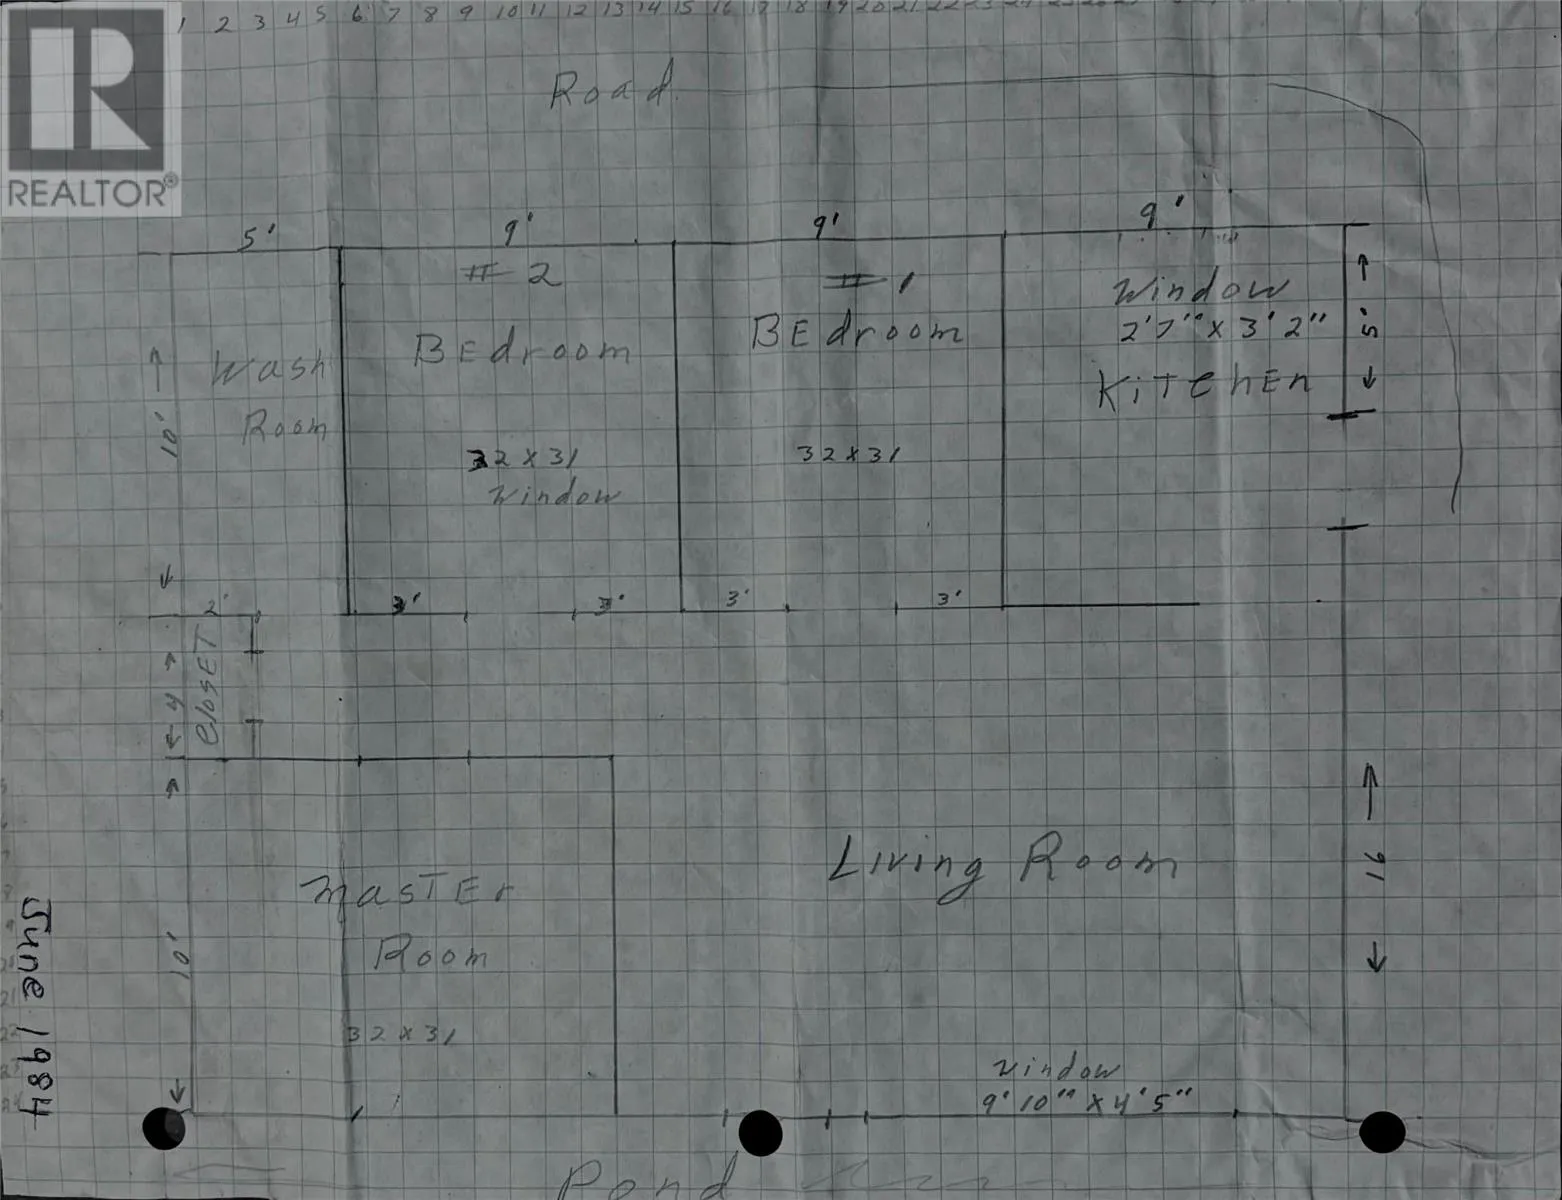 1 2 3 4 5 6 7 8 9 10 11 12 13 14 15 16 17 18 19 20 21 22 23 24 25 26 27
REALTOR®
Road
5' 9' 9' 9'
# 2
# 1
Window
2'7" x 3'2"
KiTchEn
5'
BEdroom
BEdroom
Wash
Room
10'
32 x 31
Window
32 x 31
2' 3' 3' 3' 3'
ClosET
4
Living Room
16
MasTEr
Room
10'
32 x 31
Window
9'10" x 4'5"
June 1984
Pond